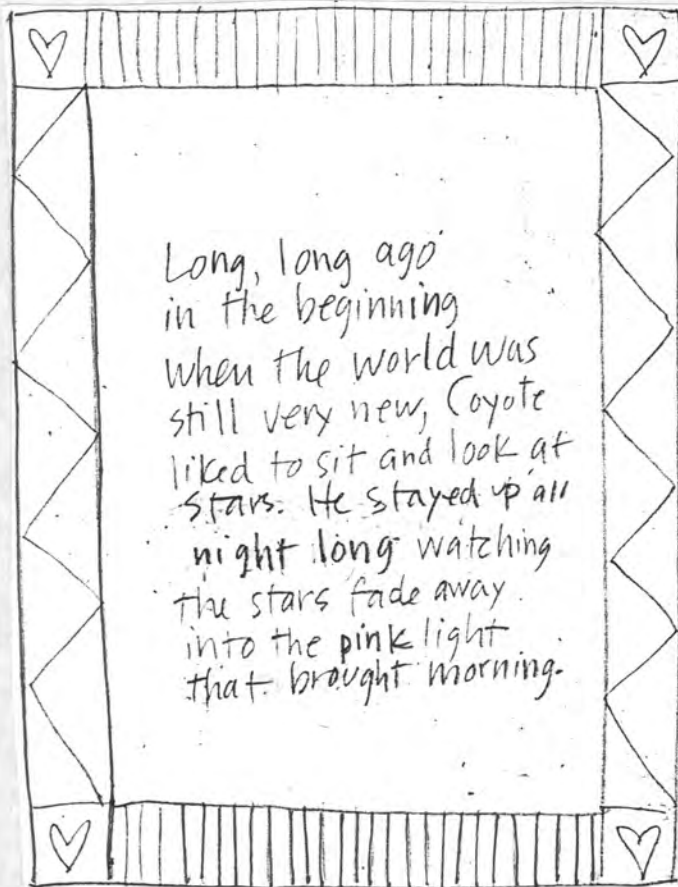 Long, long ago
in the beginning
when the world was
still very new, Coyote
liked to sit and look at
stars. He stayed up all
night long watching
the stars fade away
into the pink light
that brought morning.